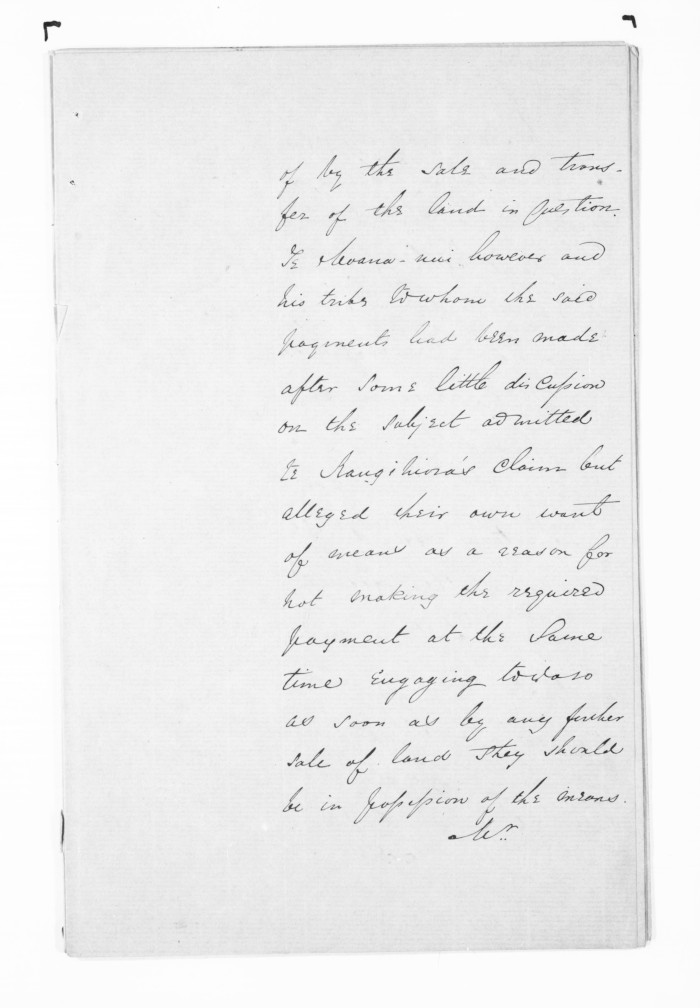 of by the sale and trans-
fer of the land in question.
Te Moana-nui however and
his tribe to whom the said
payments had been made
after some little discussion
on the subject admitted
Te Rangihiroa's claim but
alleged their own want
of means as a reason for
not making the required
payment at the same
time engaging to do so
as soon as by any further
sale of land they should
be in possession of the means.
Mr.